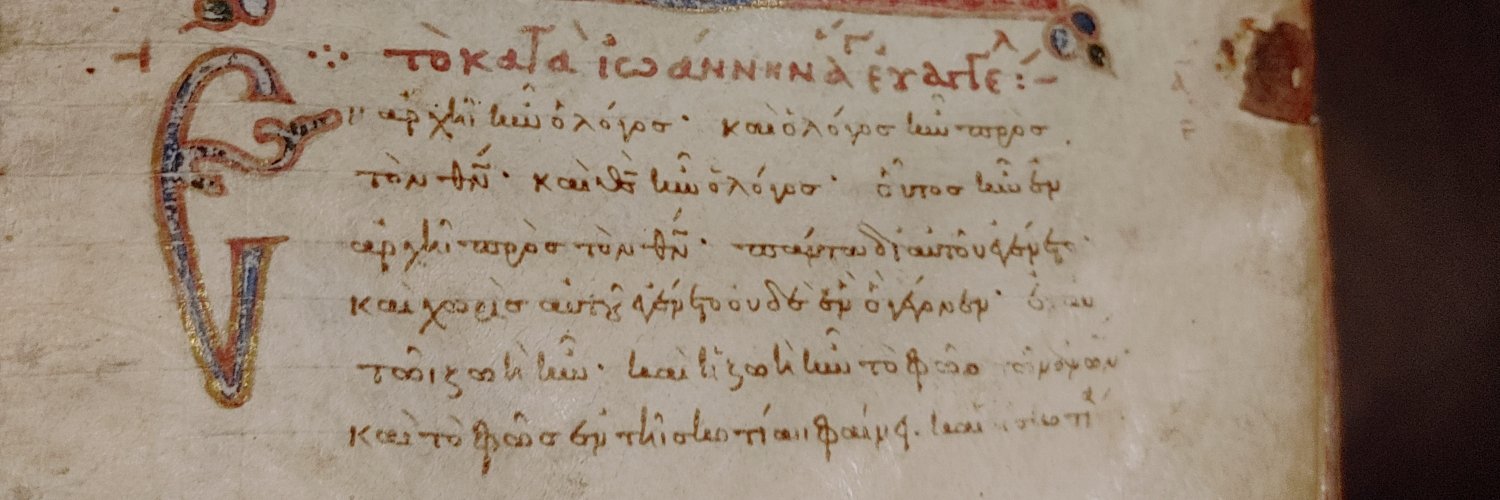 τὸ κατὰ ἰωάννην ἅγ εὐαγγελ
Ἐν ἀρχῆι ἦν ὁ λόγοσ· καὶ ὁ λόγοσ ἦν πρὸσ
τὸν θν· καὶ θσ ἦν ὁ λόγοσ· οὗτοσ ἦν ἐν
ἀρχῆι πρὸσ τὸν θν· πάντα δι αὐτοῦ ἐγένετο·
καὶ χωρὶσ αὐτοῦ ἐγένετο οὐδὲ ἓν ὃ γέγονεν· ἐν αυ
τῶι ζωὴ ἦν· καὶ ἡ ζωὴ ἦν τὸ φῶσ
καὶ τὸ φῶσ ἐν τῆι σκοτίαι φαίνει· καὶ ἡ σκοτί